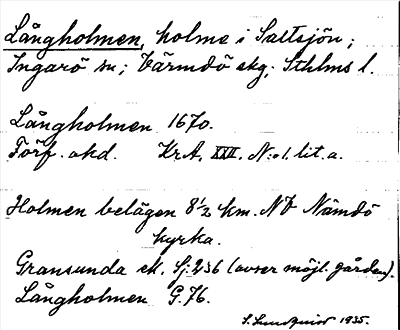 Långholmen, holme i Saltsjön;
Ingarö sn; Värmdö skg; Sthlms l.
Långholmen 1670.
Förf. okd. KrA, XXII. N:o 1. lit. a.
Holmen belägen 8½ km. NO Nämdö
kyrka.
Gransunda ek. Sj: 236 (avser möjl. gården).
Långholmen G. 76.
S. Lundqvist 1935.